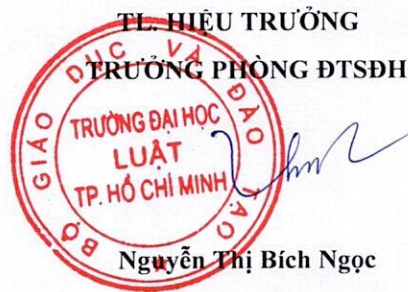 TL. HIỆU TRƯỞNG
TRƯỞNG PHÒNG ĐTSĐH
BỘ GIÁO DỤC VÀ ĐÀO TẠO
TRƯỜNG ĐẠI HỌC
LUẬT
TP. HỒ CHÍ MINH
Nguyễn Thị Bích Ngọc